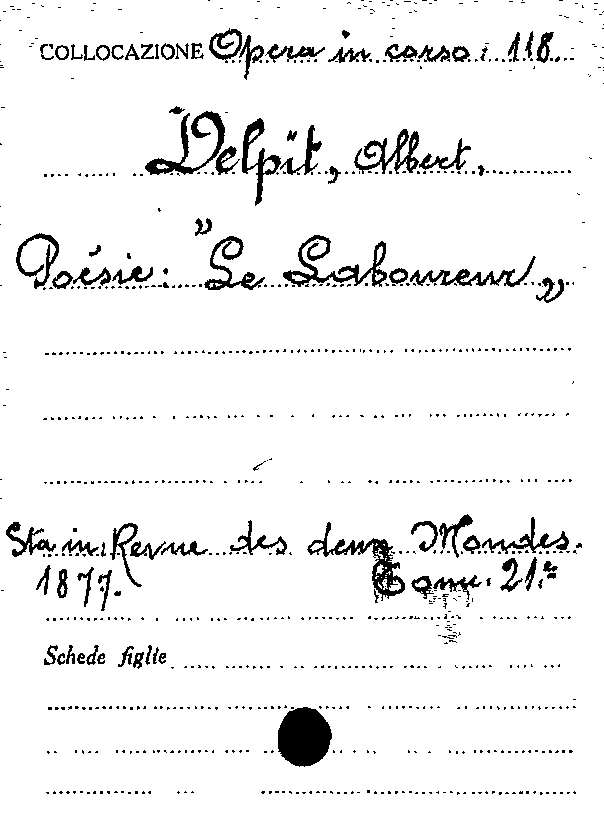 COLLOCAZIONE Opera in corso: 118.
Delpit, Albert.
Poésie: "Le Laboureur„
Sta in: Revue des deux Mondes.
1877. Tome. 21.e
Schede figlie